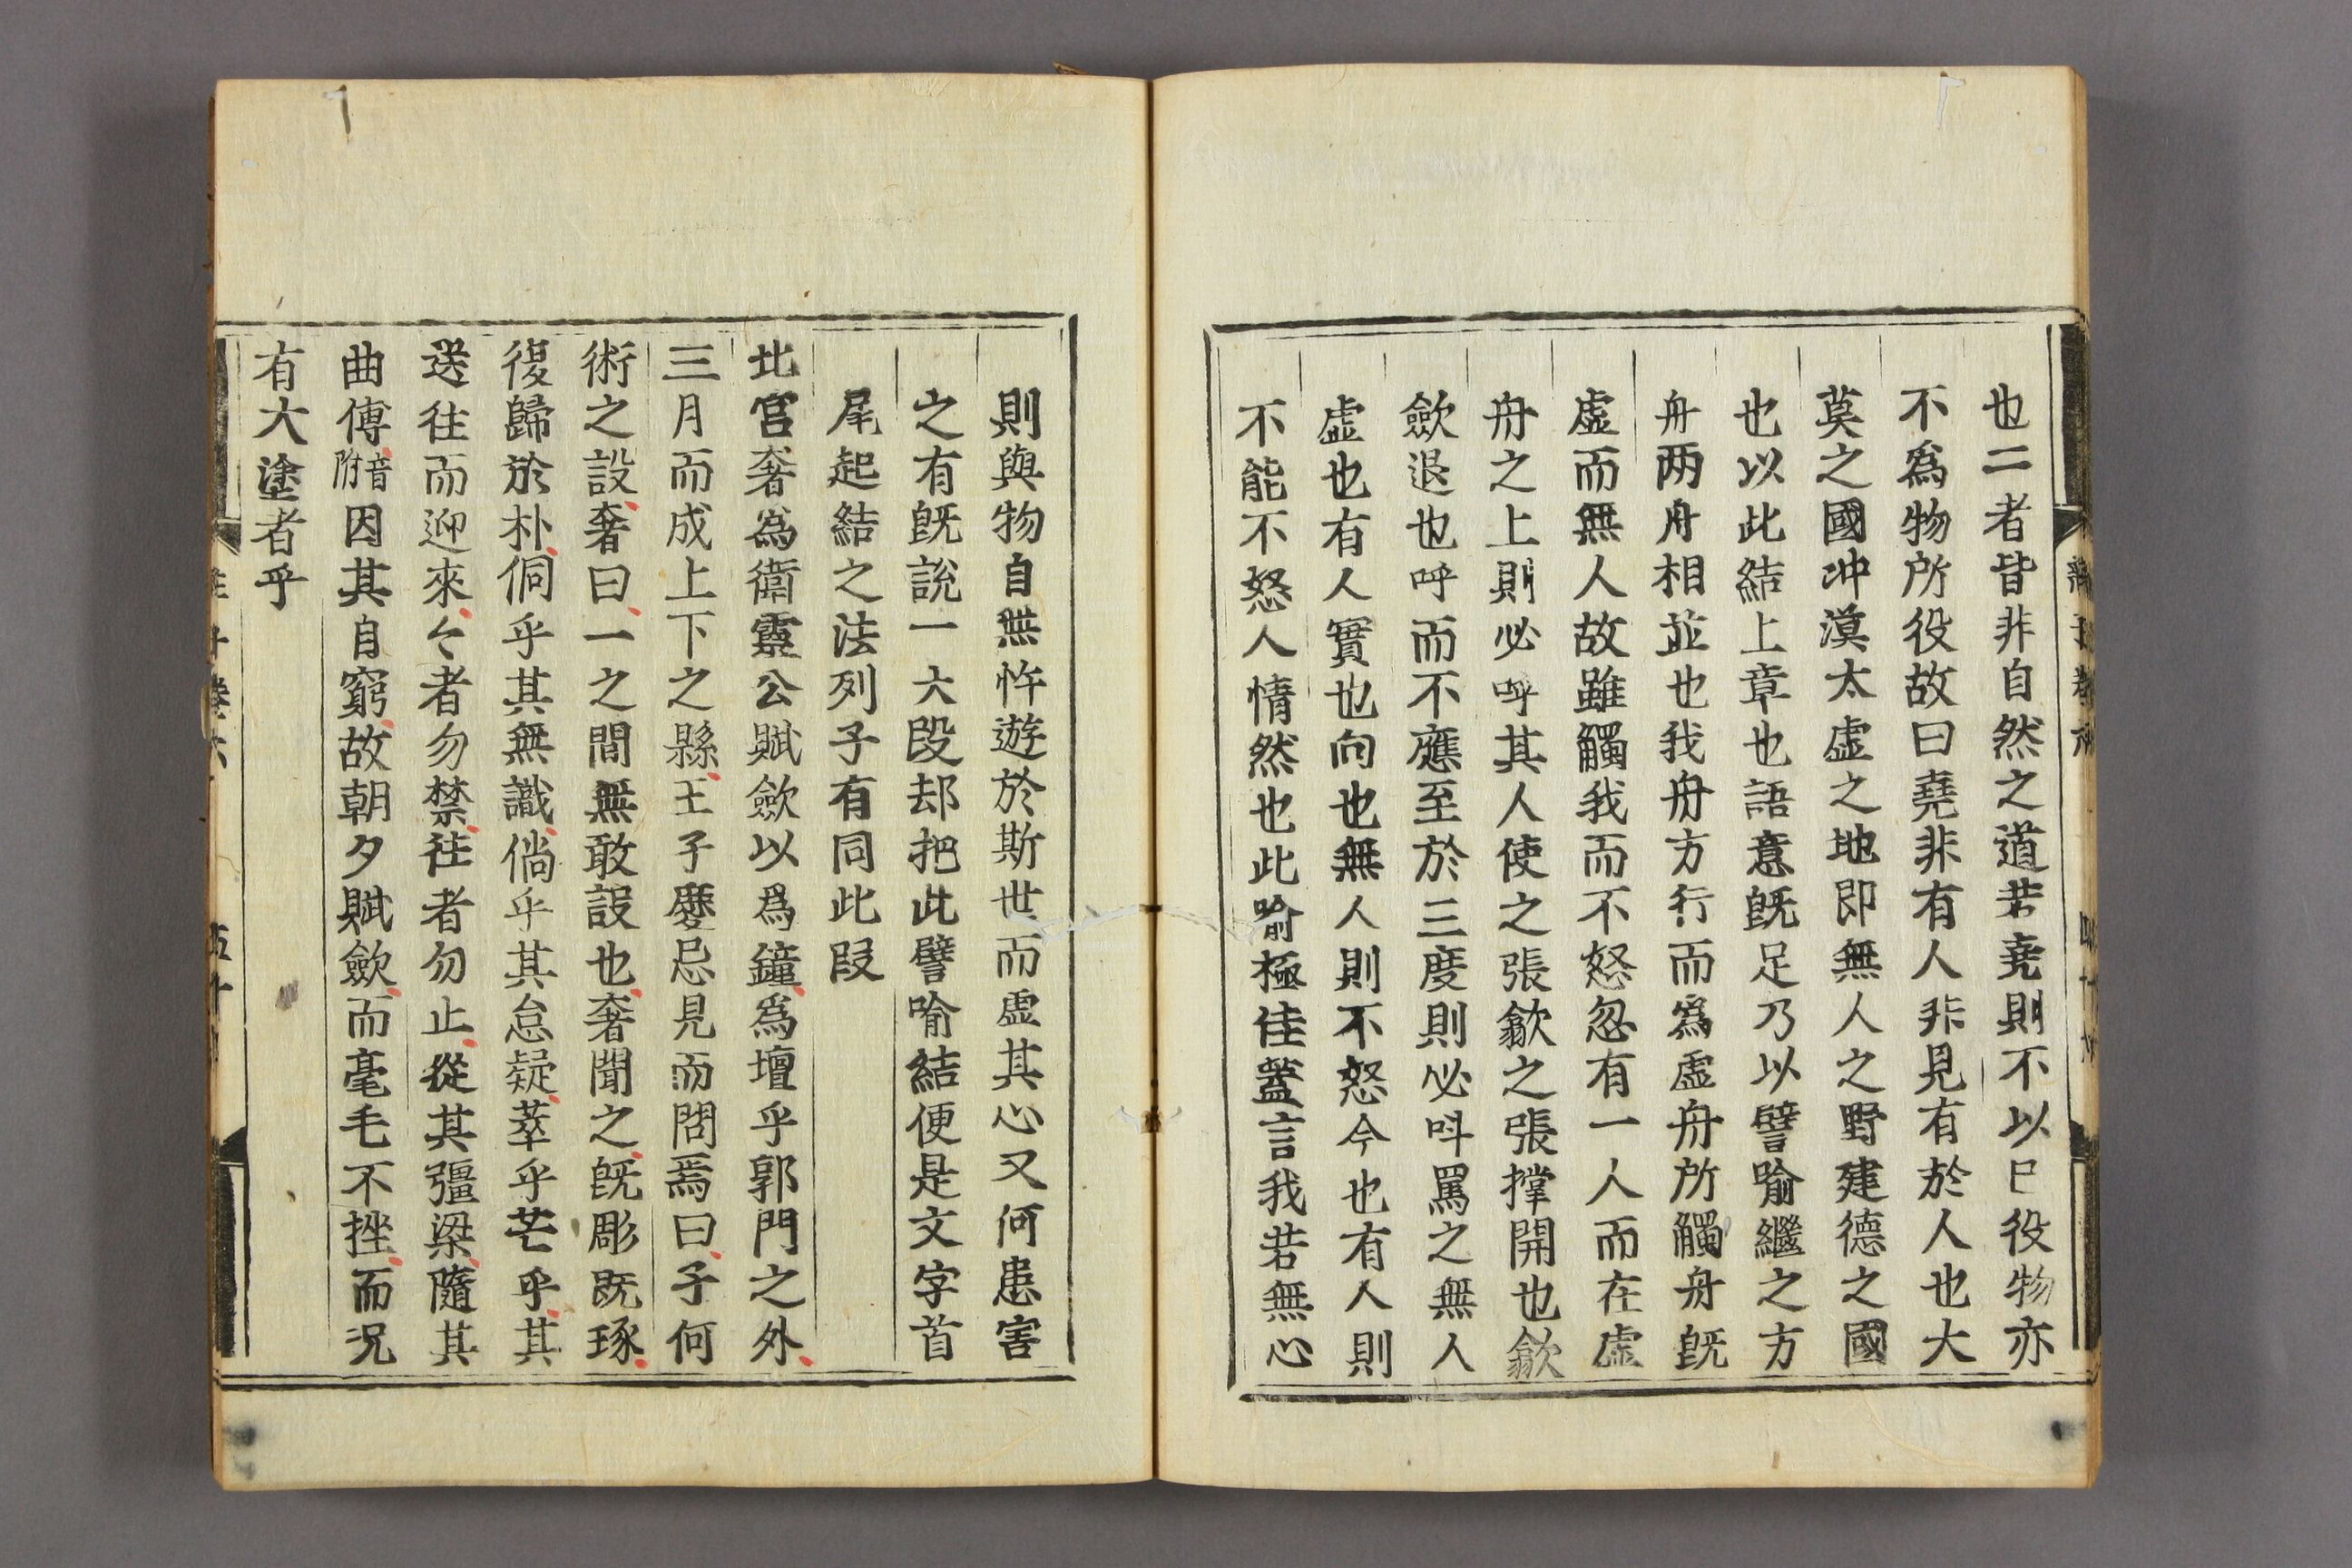 也二者皆非自然之道若堯則不以已役物亦
不爲物所役故曰堯非有人非見有於人也大
莫之國冲漠太虛之地即無人之野建德之國
也以此結上章也語意旣足乃以譬喻繼之方
舟两舟相並也我舟方行而爲虛舟所觸舟旣
虛而無人故雖觸我而不怒忽有一人而在虛
舟之上則必呼其人使之張歙之張撑開也歙
歛退也呼而不應至於三度則必呌罵之無人
虛也有人實也向也無人則不怒今也有人則
不能不怒人情然也此喻極佳蓋言我若無心
則與物自無忤遊於斯世而虛其心又何患害
之有旣說一大段却把此譬喻結便是文字首
尾起結之法列子有同此段
北宮奢爲衛靈公賦歛以爲鐘爲壇乎郭門之外
三月而成上下之縣王子慶忌見而問焉曰子何
術之設奢曰一之間無敢設也奢聞之旣彫旣琢
復歸於朴侗乎其無識倘乎其怠疑萃乎芒乎其
送往而迎來〻者勿禁往者勿止從其彊梁隨其
曲傅音附因其自窮故朝夕賦歛而毫毛不挫而况
有大塗者乎